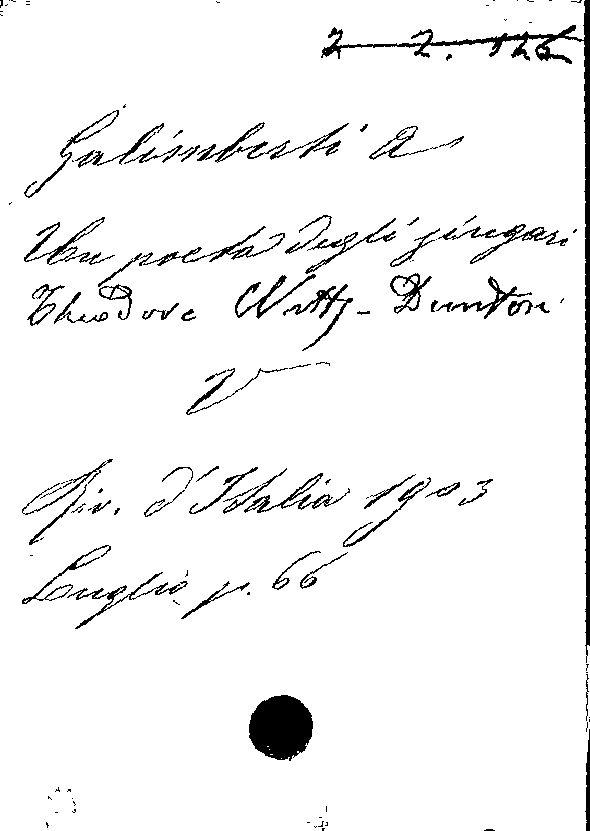 2 2. 126
Galimberti A
Un poeta degli zingari
Theodore Watts-Dunton
V
Riv. d'Italia 1903
Luglio p. 66